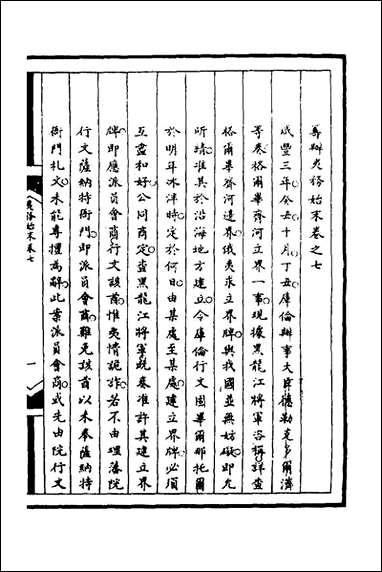 籌辦夷務始末卷之七
咸豐三年癸丑十月丁丑庫倫辦事大臣德勒克多爾濟
等奏格爾畢齊河立界一事現據黑龍江將軍咨稱詳查
格爾畢齊河邊界俄夷求立界牌與我國並無妨礙即允
所請准其於沿海地方建立令庫倫行文固畢爾那托爾
於明年冰泮時定於何日由某處至某處建立界牌必須
互盡和好公同商定查黑龍江將軍既奏准許其建立界
碑即應派員會商行文該酋惟夷情詭詐若不由理藩院
行文薩納特衙門即派員會商難免該酋以未奉薩納特
衙門札文未能專擅為辭此案派員會商或先由院行文
夷務始末卷七
一